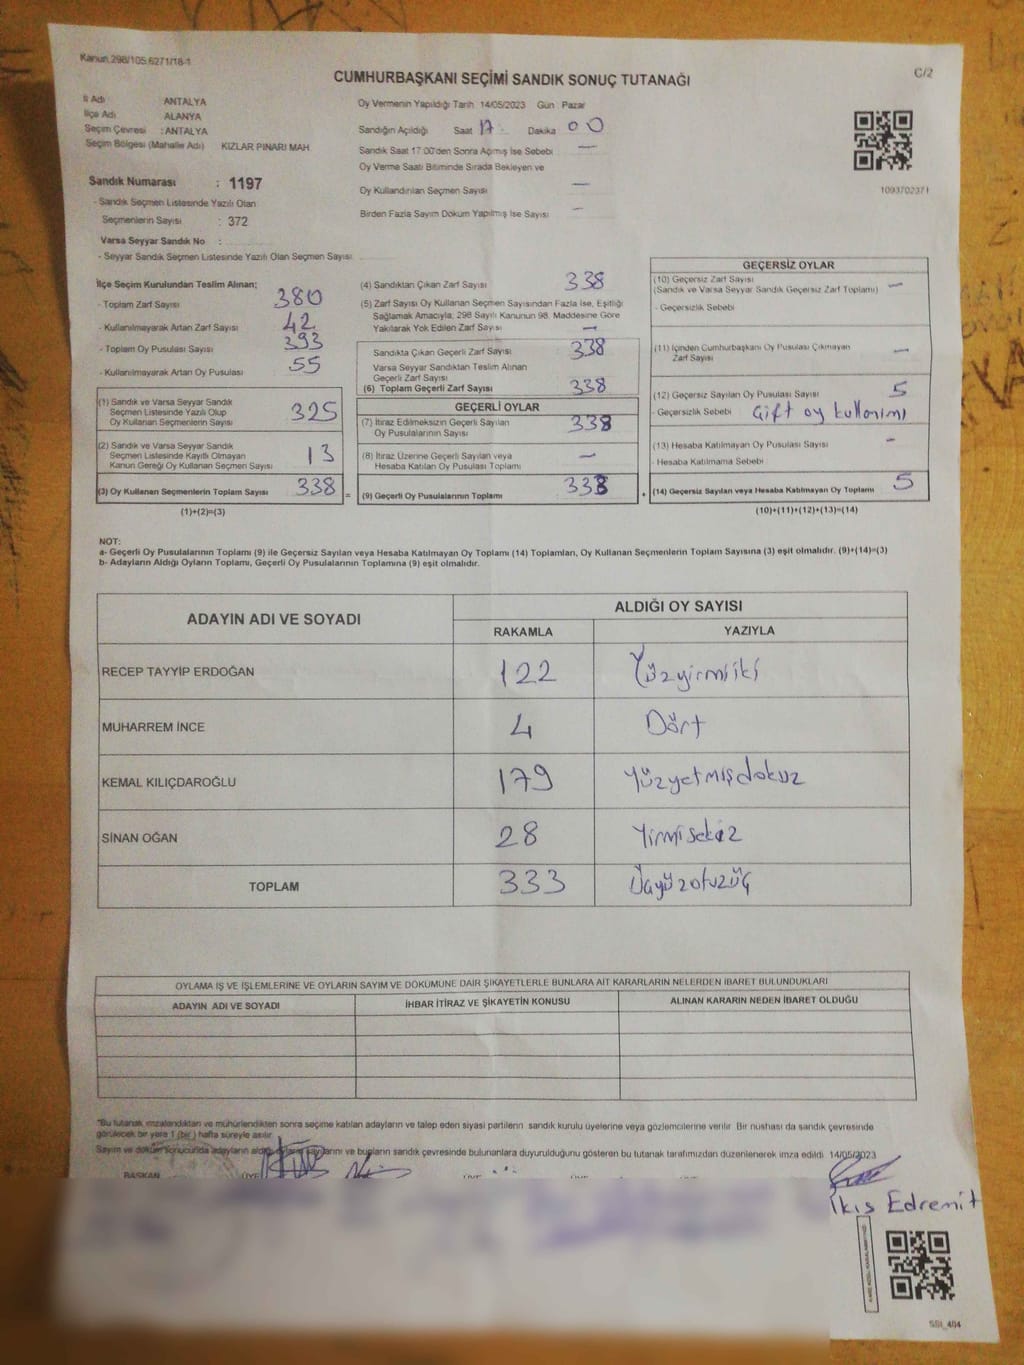 Kanun.298/105.6271/18-1
C/2
CUMHURBAŞKANI SEÇİMİ SANDIK SONUÇ TUTANAĞI
İl Adı ANTALYA
İlçe Adı ALANYA
Seçim Çevresi : ANTALYA
Seçim Bölgesi (Mahalle Adı) KIZLAR PINARI MAH
Sandık Numarası : 1197
- Sandık Seçmen Listesinde Yazılı Olan
Seçmenlerin Sayısı : 372
Varsa Seyyar Sandık No :
- Seyyar Sandık Seçmen Listesinde Yazılı Olan Seçmen Sayısı
Oy Vermenin Yapıldığı Tarih 14/05/2023 Gün Pazar
Sandığın Açıldığı Saat 17 Dakika 00
Sandık Saat 17:00'den Sonra Açımış İse Sebebi —
Oy Verme Saati Bitiminde Sırada Bekleyen ve
Oy Kullandırılan Seçmen Sayısı —
Birden Fazla Sayım Döküm Yapılmış İse Sayısı —
1093702371
İlçe Seçim Kurulundan Teslim Alınan;
- Toplam Zarf Sayısı 380
- Kullanılmayarak Artan Zarf Sayısı 42
- Toplam Oy Pusulası Sayısı 393
- Kullanılmayarak Artan Oy Pusulası 55
(1) Sandık ve Varsa Seyyar Sandık
Seçmen Listesinde Yazılı Olup
Oy Kullanan Seçmenlerin Sayısı 325
(2) Sandık ve Varsa Seyyar Sandık
Seçmen Listesinde Kayıtlı Olmayan
Kanun Gereği Oy Kullanan Seçmen Sayısı 13
(3) Oy Kullanan Seçmenlerin Toplam Sayısı 338 =
(1)+(2)=(3)
(4) Sandıktan Çıkan Zarf Sayısı 338
(5) Zarf Sayısı Oy Kullanan Seçmen Sayısından Fazla İse, Eşitliği
Sağlamak Amacıyla, 298 Sayılı Kanunun 98. Maddesine Göre
Yakılarak Yok Edilen Zarf Sayısı —
Sandıkta Çıkan Geçerli Zarf Sayısı 338
Varsa Seyyar Sandıktan Teslim Alınan
Geçerli Zarf Sayısı
(6) Toplam Geçerli Zarf Sayısı 338
GEÇERLİ OYLAR
(7) İtiraz Edilmeksizin Geçerli Sayılan
Oy Pusulalarının Sayısı 338
(8) İtiraz Üzerine Geçerli Sayılan veya
Hesaba Katılan Oy Pusulası Toplamı —
(9) Geçerli Oy Pusulalarının Toplamı 333 +
GEÇERSİZ OYLAR
(10) Geçersiz Zarf Sayısı
(Sandık ve Varsa Seyyar Sandık Geçersiz Zarf Toplamı) —
- Geçersizlik Sebebi
(11) İçinden Cumhurbaşkanı Oy Pusulası Çıkmayan
Zarf Sayısı —
(12) Geçersiz Sayılan Oy Pusulası Sayısı 5
- Geçersizlik Sebebi Çift oy kullanımı
(13) Hesaba Katılmayan Oy Pusulası Sayısı —
- Hesaba Katılmama Sebebi
(14) Geçersiz Sayılan veya Hesaba Katılmayan Oy Toplamı 5
(10)+(11)+(12)+(13)=(14)
NOT:
a- Geçerli Oy Pusulalarının Toplamı (9) ile Geçersiz Sayılan veya Hesaba Katılmayan Oy Toplamı (14) Toplamları, Oy Kullanan Seçmenlerin Toplam Sayısına (3) eşit olmalıdır. (9)+(14)=(3)
b- Adayların Aldığı Oyların Toplamı, Geçerli Oy Pusulalarının Toplamına (9) eşit olmalıdır.
ADAYIN ADI VE SOYADI
ALDIĞI OY SAYISI
RAKAMLA YAZIYLA
RECEP TAYYİP ERDOĞAN 122 Yüzyirmiiki
MUHARREM İNCE 4 Dört
KEMAL KILIÇDAROĞLU 179 Yüzyetmişdokuz
SİNAN OĞAN 28 Yirmisekiz
TOPLAM 333 Üçyüzotuzüç
OYLAMA İŞ VE İŞLEMLERİNE VE OYLARIN SAYIM VE DÖKÜMÜNE DAİR ŞİKAYETLERLE BUNLARA AİT KARARLARIN NELERDEN İBARET BULUNDUKLARI
ADAYIN ADI VE SOYADI İHBAR İTİRAZ VE ŞİKAYETİN KONUSU ALINAN KARARIN NEDEN İBARET OLDUĞU
"Bu tutanak imzalandıktan ve mühürlendikten sonra seçime katılan adayların ve talep eden siyasi partilerin sandık kurulu üyelerine veya gözlemcilerine verilir. Bir nüshası da sandık çevresinde
görülecek bir yere 1 (bir) hafta süreyle asılır.
Sayım ve döküm sonucunda adayların aldığı oyların sayılarını ve bunların sandık çevresinde bulunanlara duyurulduğunu gösteren bu tutanak tarafımızdan düzenlenerek imza edildi. 14/05/2023
BAŞKAN ÜYE ÜYE ÜYE
Edremit
SSI_404